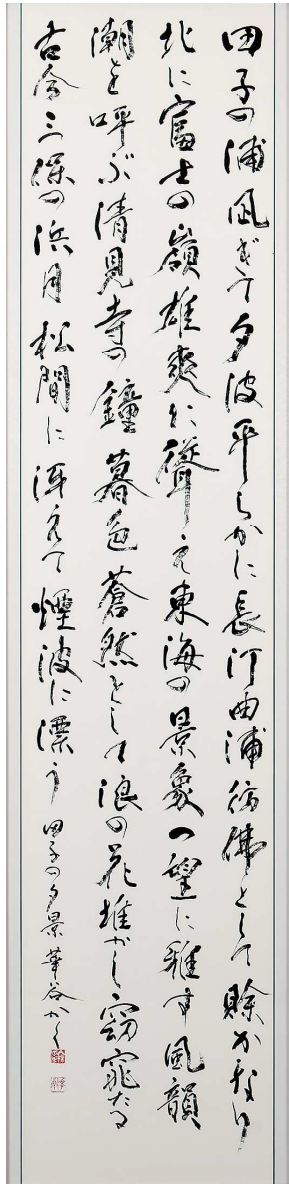 田子の浦凪ぎて夕波平らかに長汀曲浦彷佛として賒かなり
北に富士の嶺雄爽と聳え東海の景象一望に雅す風韻
潮を呼ぶ清見寺の鐘暮色蒼然として浪の花堆がし窈窕たる
古今三保の浜月松間に洱えて煙波に漂う 田子の夕景 華谷かく